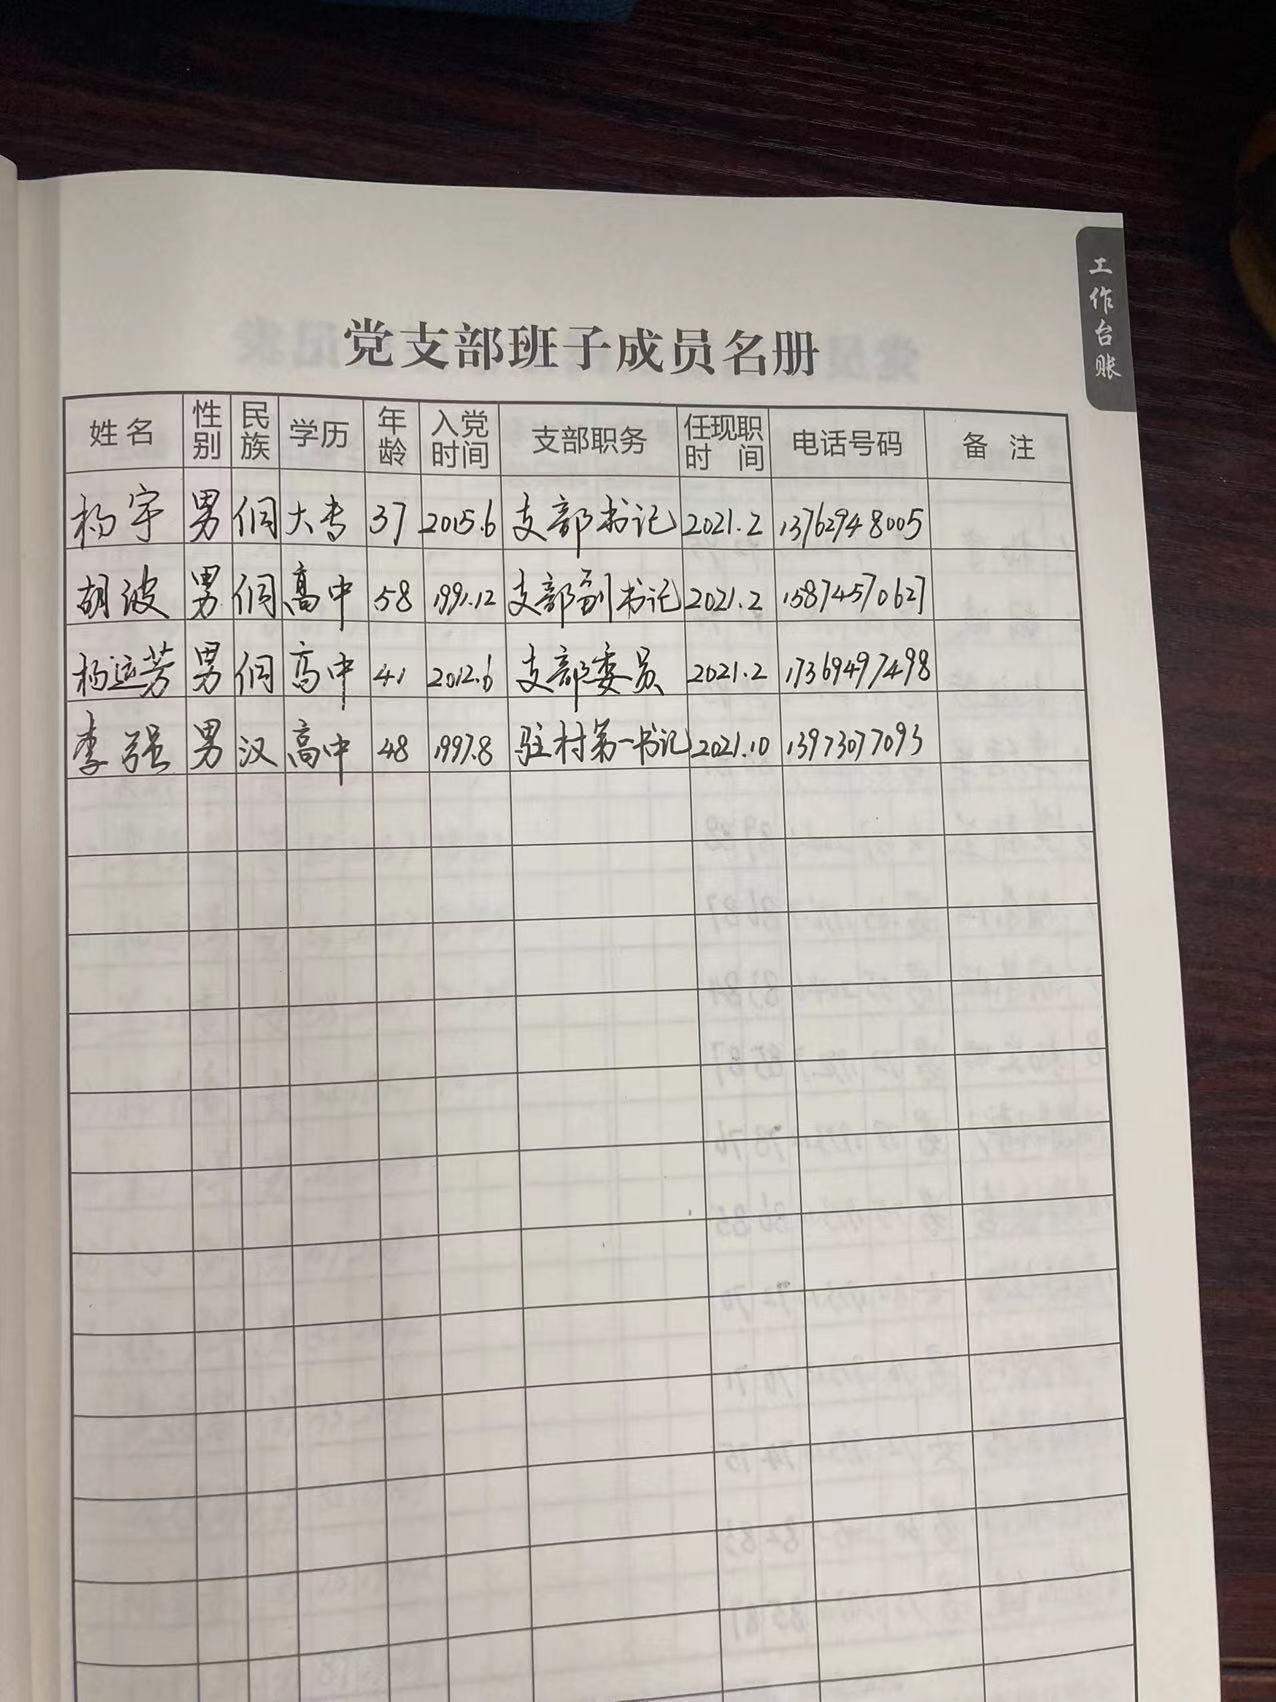 工作台账
党支部班子成员名册
姓名 性别 民族 学历 年龄 入党时间 支部职务 任现职时间 电话号码 备注
杨宇 男 侗 大专 37 2015.6 支部书记 2021.2 13762948005
胡波 男 侗 高中 58 1991.12 支部副书记 2021.2 15874570627
杨运芳 男 侗 高中 41 2012.6 支部委员 2021.2 17369497498
李强 男 汉 高中 48 1997.8 驻村第一书记 2021.10 13973077093